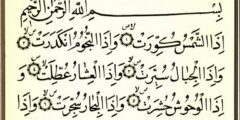 بِسْمِ اللَّهِ الرَّحْمَنِ الرَّحِيمِ
إِذَا الشَّمْسُ كُوِّرَتْ ۝ وَإِذَا النُّجُومُ انْكَدَرَتْ ۝
وَإِذَا الْجِبَالُ سُيِّرَتْ ۝ وَإِذَا الْعِشَارُ عُطِّلَتْ ۝ وَ
إِذَا الْوُحُوشُ حُشِرَتْ ۝ وَإِذَا الْبِحَارُ سُجِّرَتْ ۝ وَإِذَا